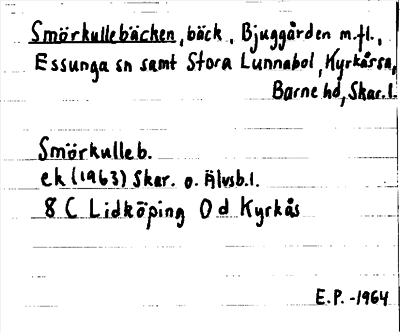 Smörkullebäcken, bäck, Bjuggården m.fl.,
Essunga sn samt Stora Lunnabol, Kyrkåssa,
Barne hd, Skar.l.
Smörkulleb.
ek (1963) Skar. o. Älvsb.l.
8 C Lidköping 0 d Kyrkås
E.P. -1964